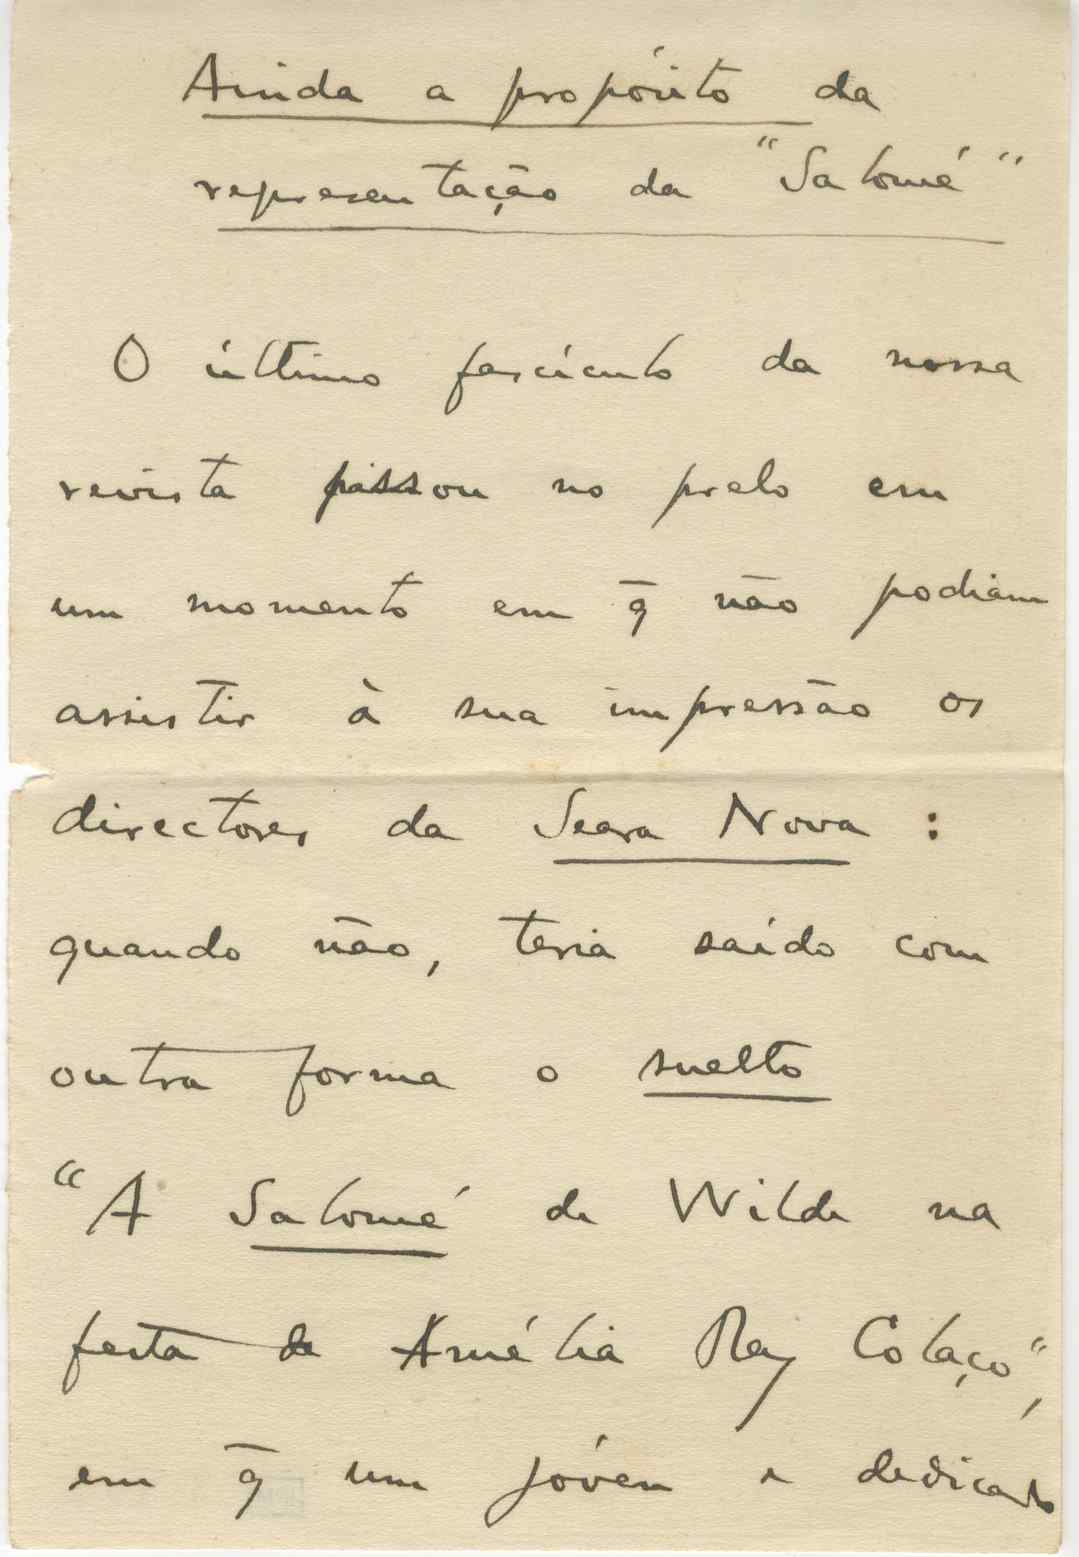 Ainda a propósito da
representação da "Salomé"
O último fascículo da nossa
revista passou no prelo em
um momento em q̄ não podiam
assistir à sua impressão os
directores da Seara Nova :
quando não, teria saído com
outra forma o suelto
"A Salomé de Wilde na
festa de Amélia Rey Colaço",
em q̄ um jóven e dedicado